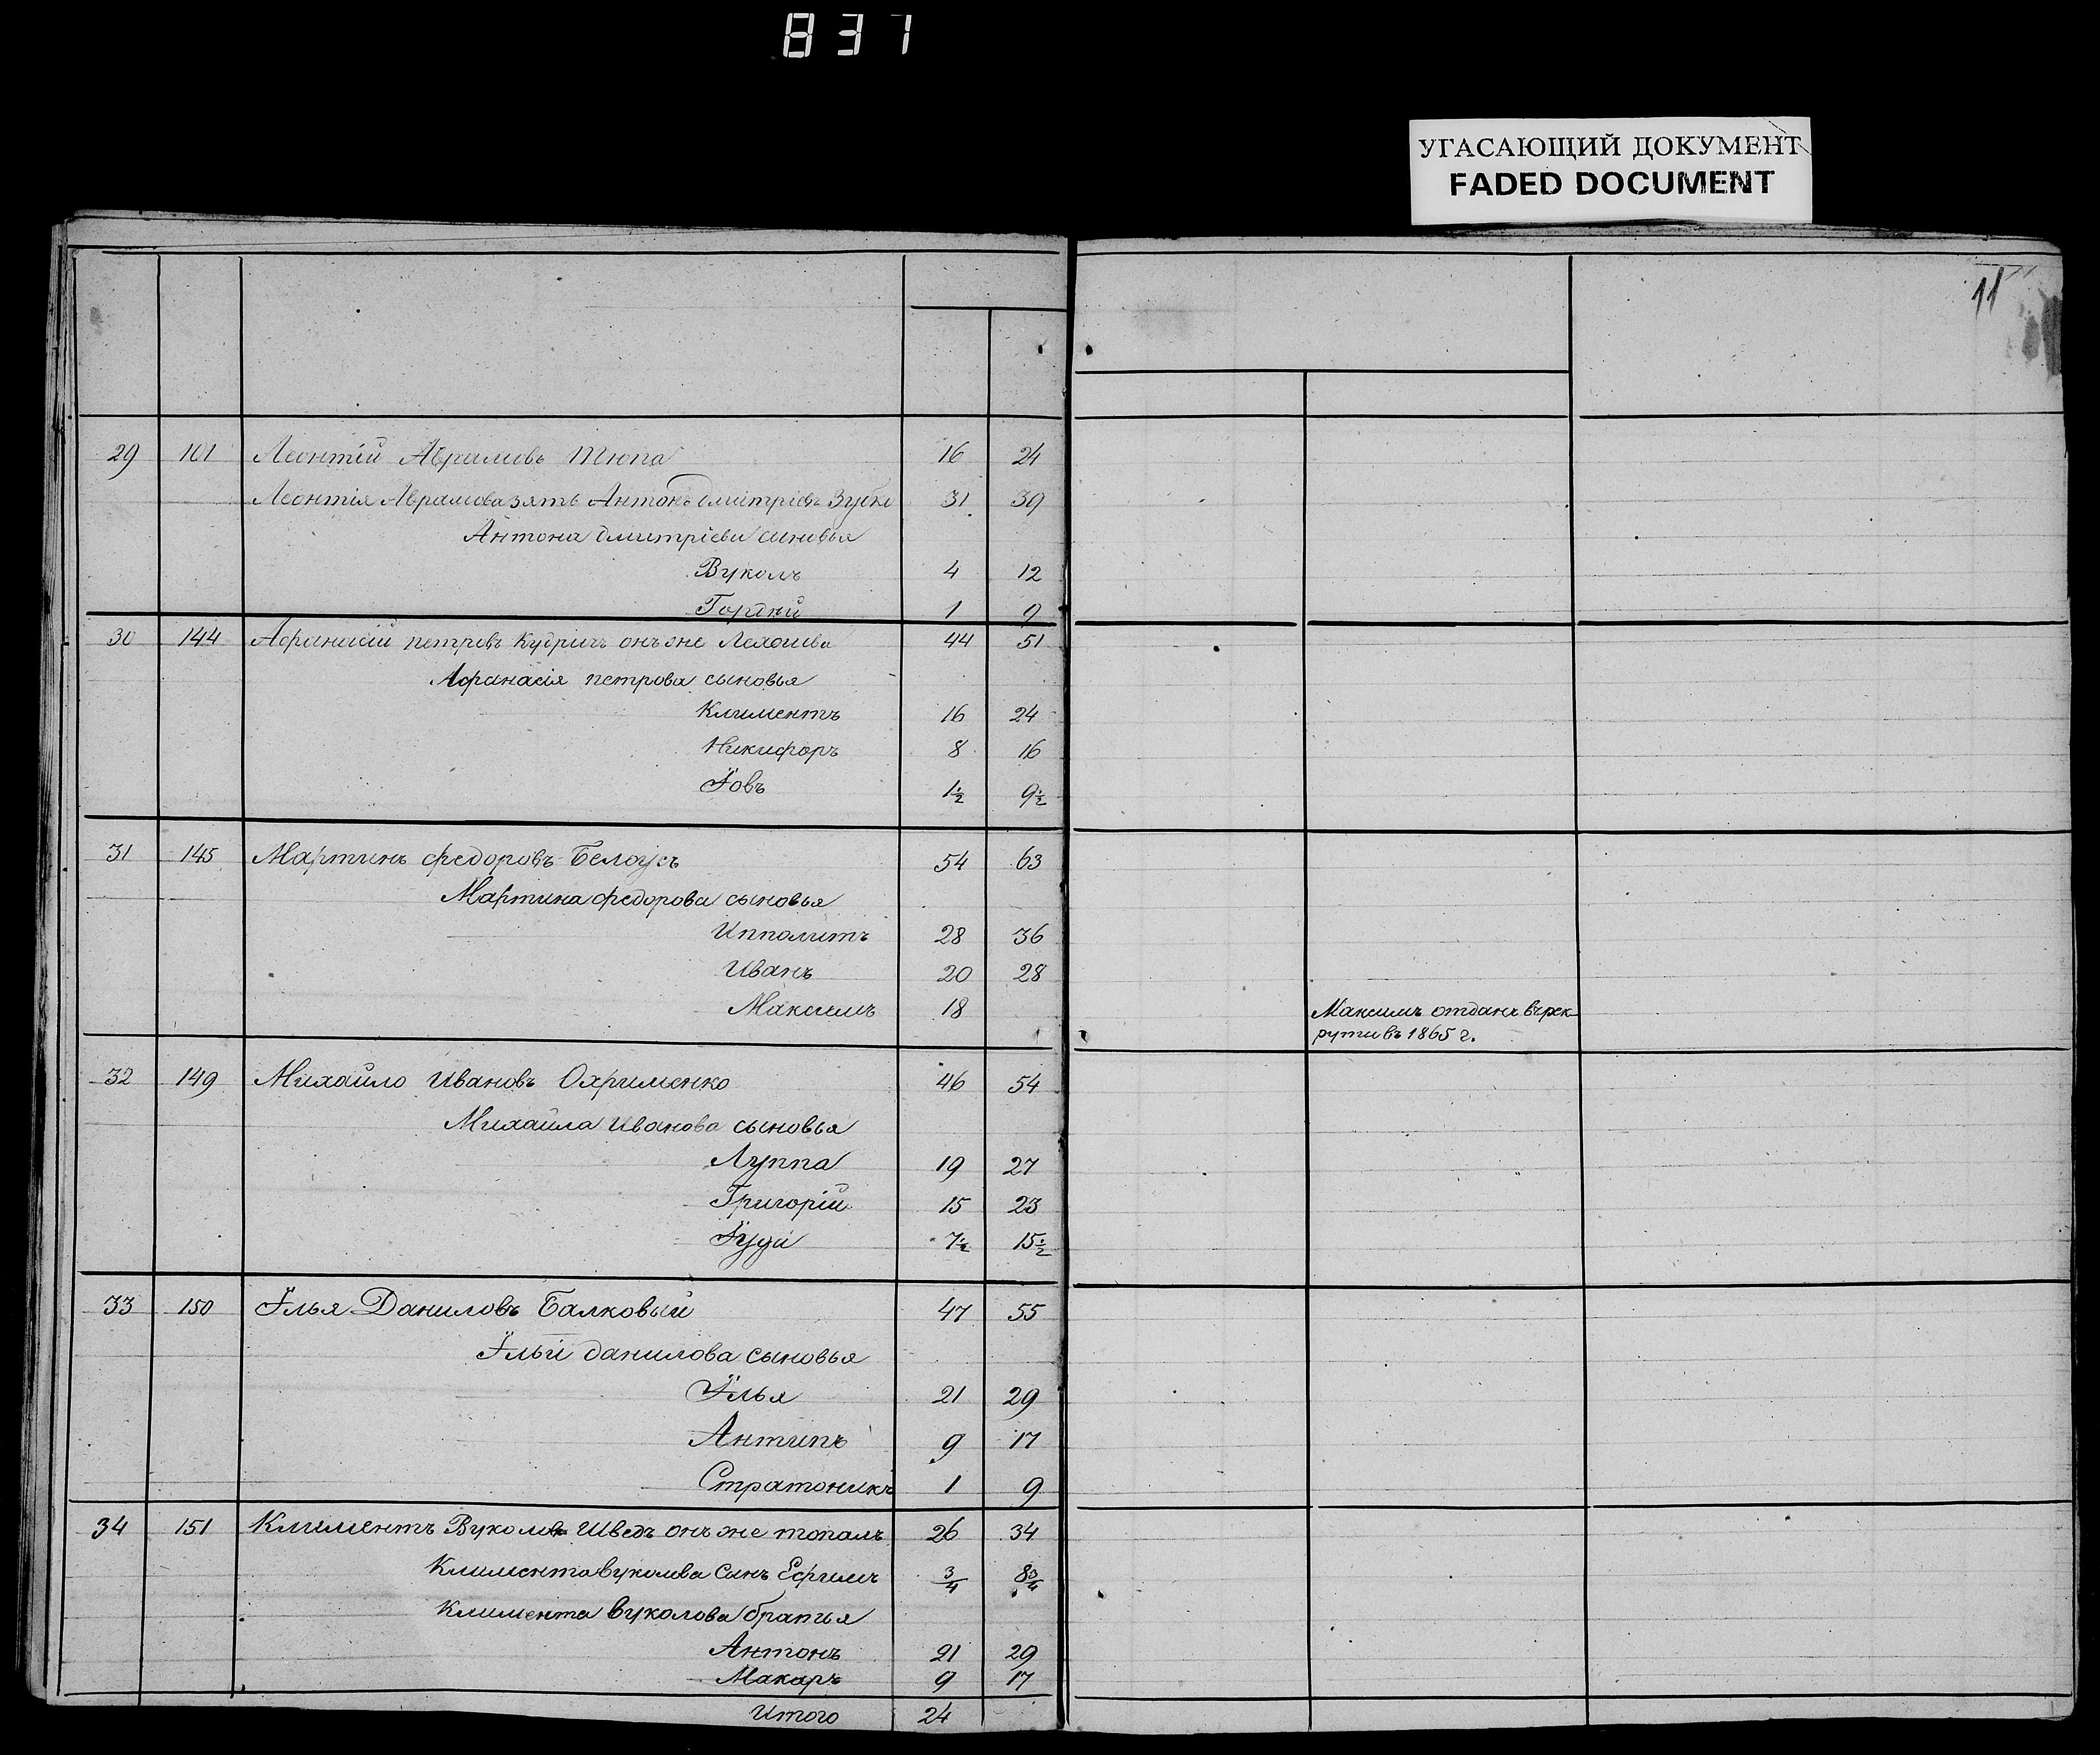 837
УГАСАЮЩИЙ ДОКУМЕНТ
FADED DOCUMENT
11
29 101 Леонтій Аврамовъ Тюпа 16 24
Леонтія Аврамова зять Антонъ дмитріевъ Зубко 31 39
Антона дмитріева сыновья
Вуколъ 4 12
Гордѣй 1 9
30 144 Афанасій петровъ Кудричъ онъ же 44 51
Афанасія петрова сыновья
Климентъ 16 24
Никифоръ 8 16
Іовъ 1½ 9½
31 145 Мартинъ федоровъ Белоусъ 54 63
Мартина федорова сыновья
Ипполитъ 28 36
Иванъ 20 28
Максимъ 18 Максимъ отданъ въ рек-
руты въ 1865 г.
32 149 Михайло Ивановъ Охрименко 46 54
Михайла Иванова сыновья
Луппа 19 27
Григорій 15 23
Іуда 7½ 15½
33 150 Ілья Даниловъ Балковый 47 55
Ільи данилова сыновья
Ілья 21 29
Антипъ 9 17
Стратоникъ 1 9
34 151 Климентъ Вуколовъ Шведъ онъ же топалъ 26 34
Климента вуколова сынъ Ефимъ 3/4 8 3/4
Климента вуколова братья
Антонъ 21 29
Макаръ 9 17
Итого 24